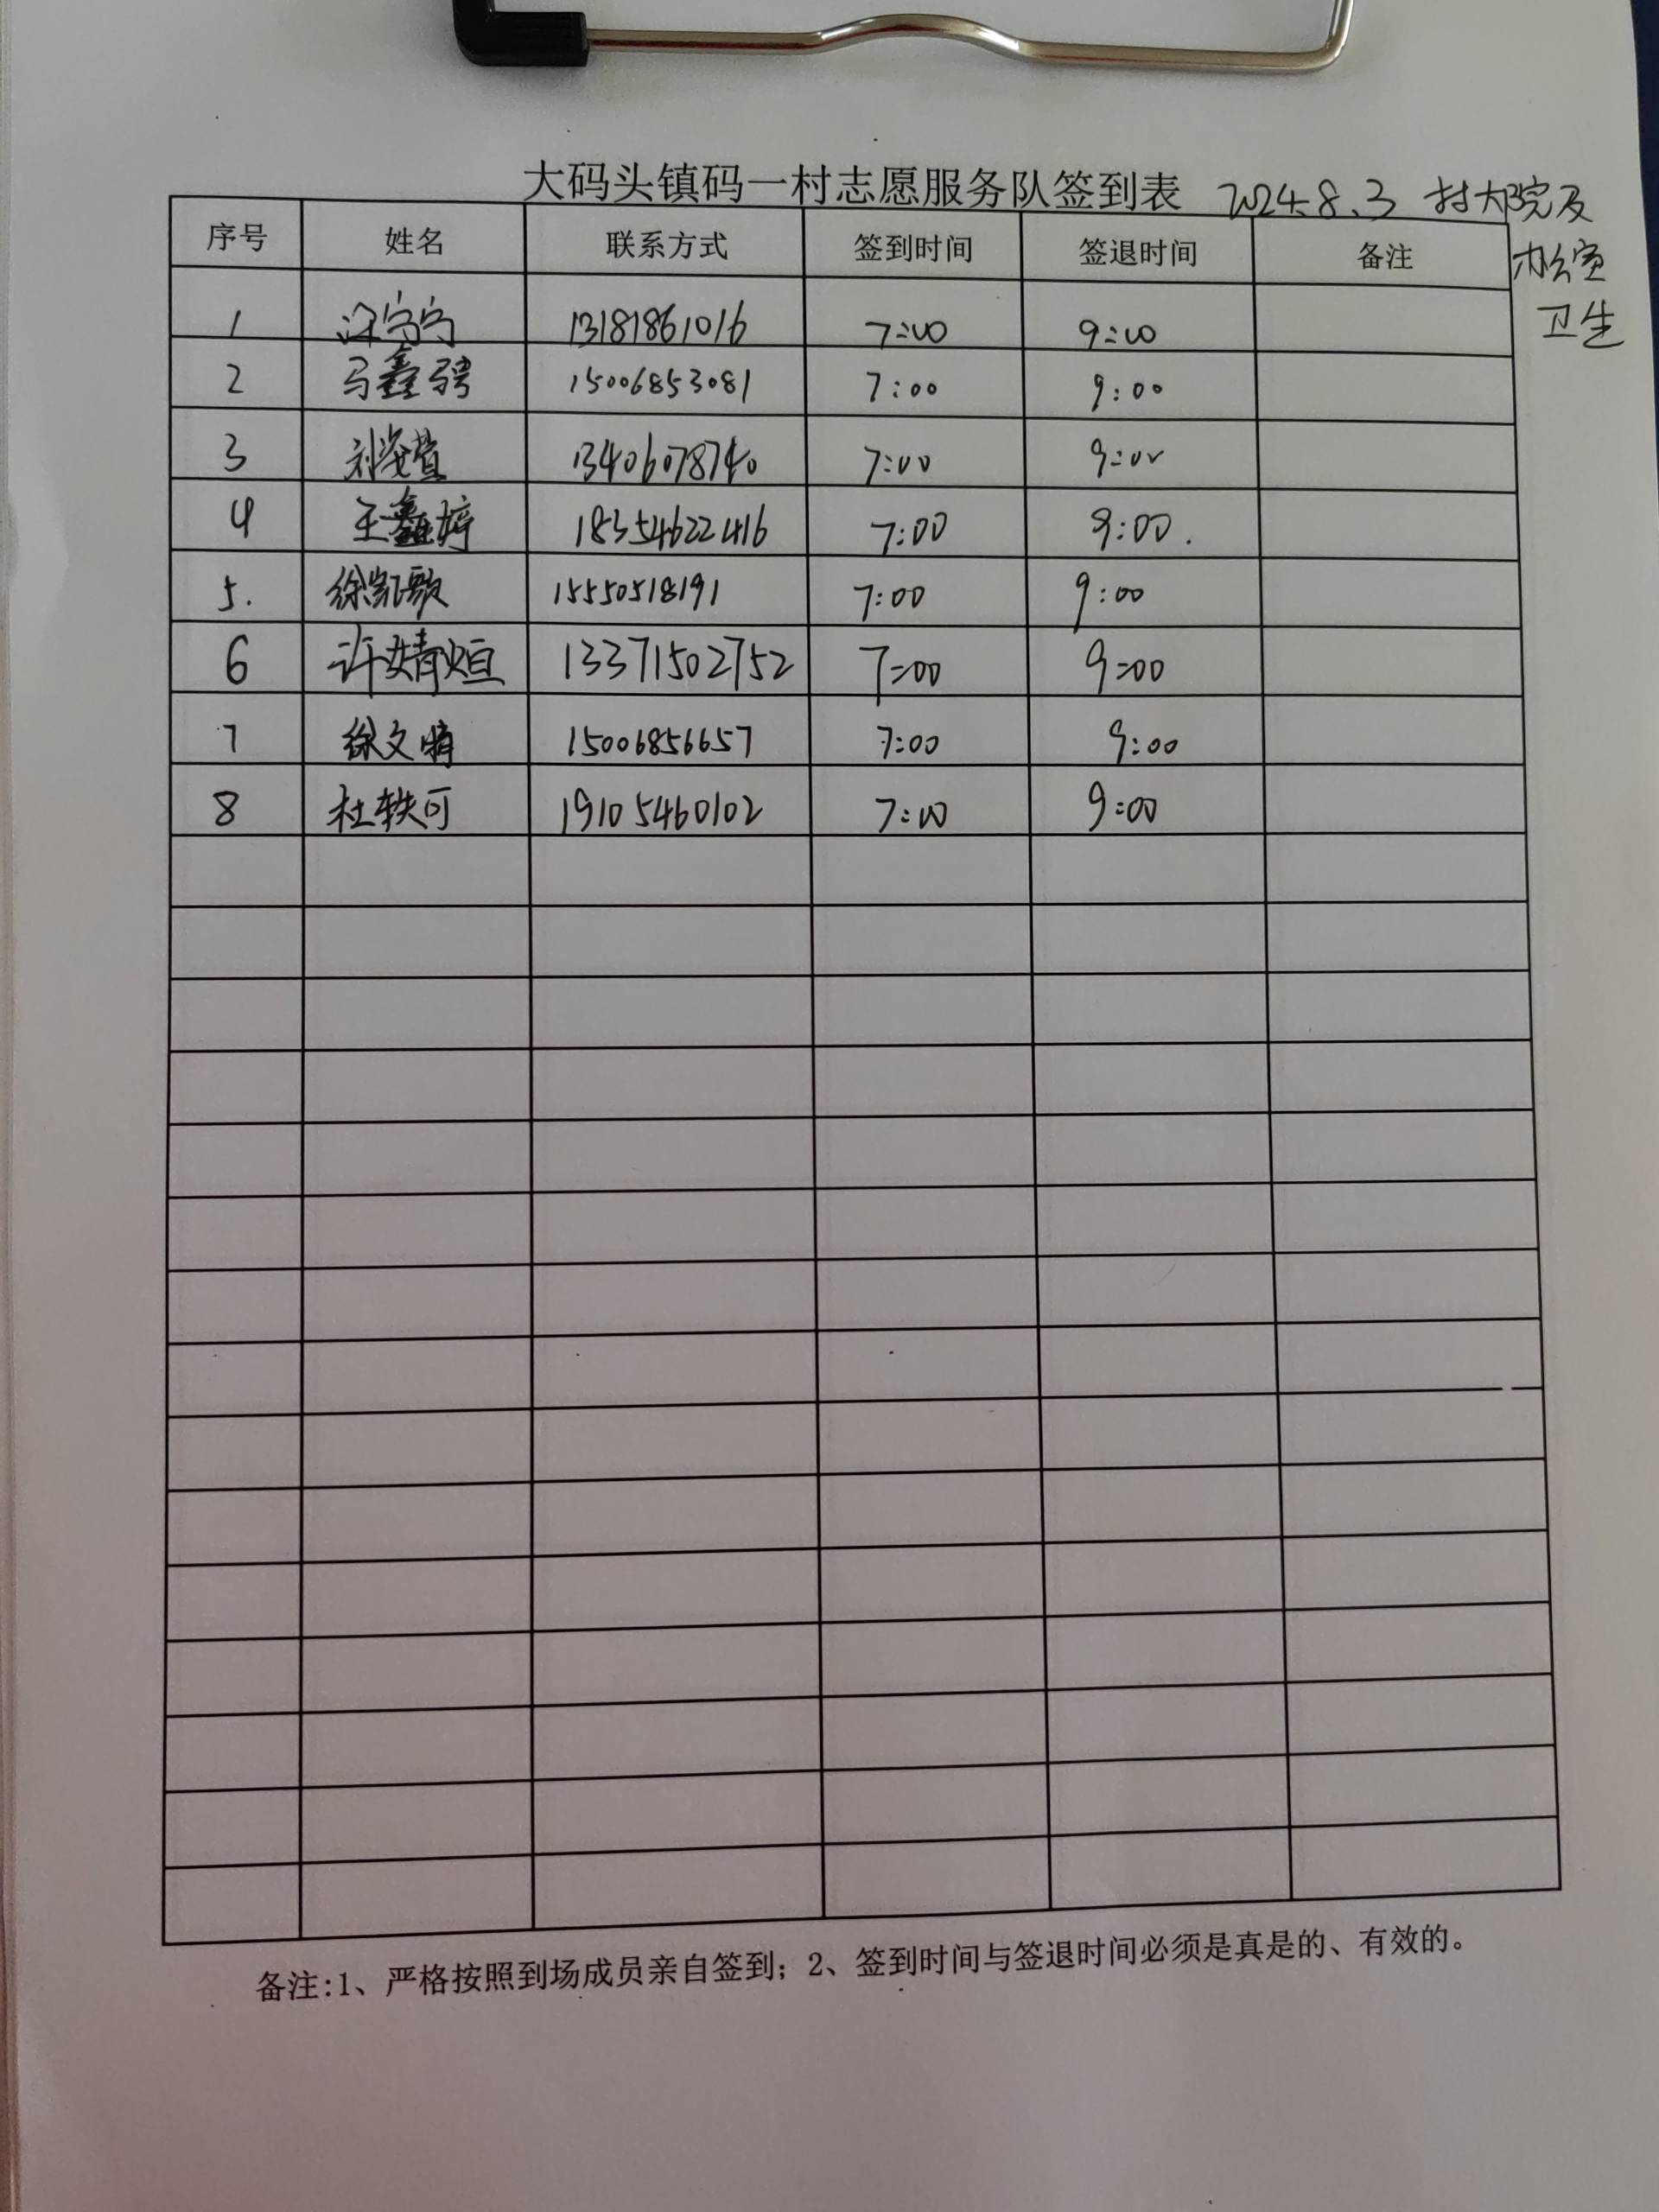 大码头镇码一村志愿服务队签到表 2024.8.3 村大院及
办公室
卫生
序号 姓名 联系方式 签到时间 签退时间 备注
1 宁宁 13181861016 7:00 9:00
2 马鑫骋 15006853081 7:00 9:00
3 刘 13406078740 7:00 9:00
4 王鑫婷 18354622416 7:00 9:00.
5. 徐凯歌 15550518191 7:00 9:00
6 许婧烜 13371502752 7:00 9:00
7 徐文 15006856657 7:00 9:00
8 杜轶可 19105460102 7:00 9:00
备注:1、严格按照到场成员亲自签到；2、签到时间与签退时间必须是真是的、有效的。